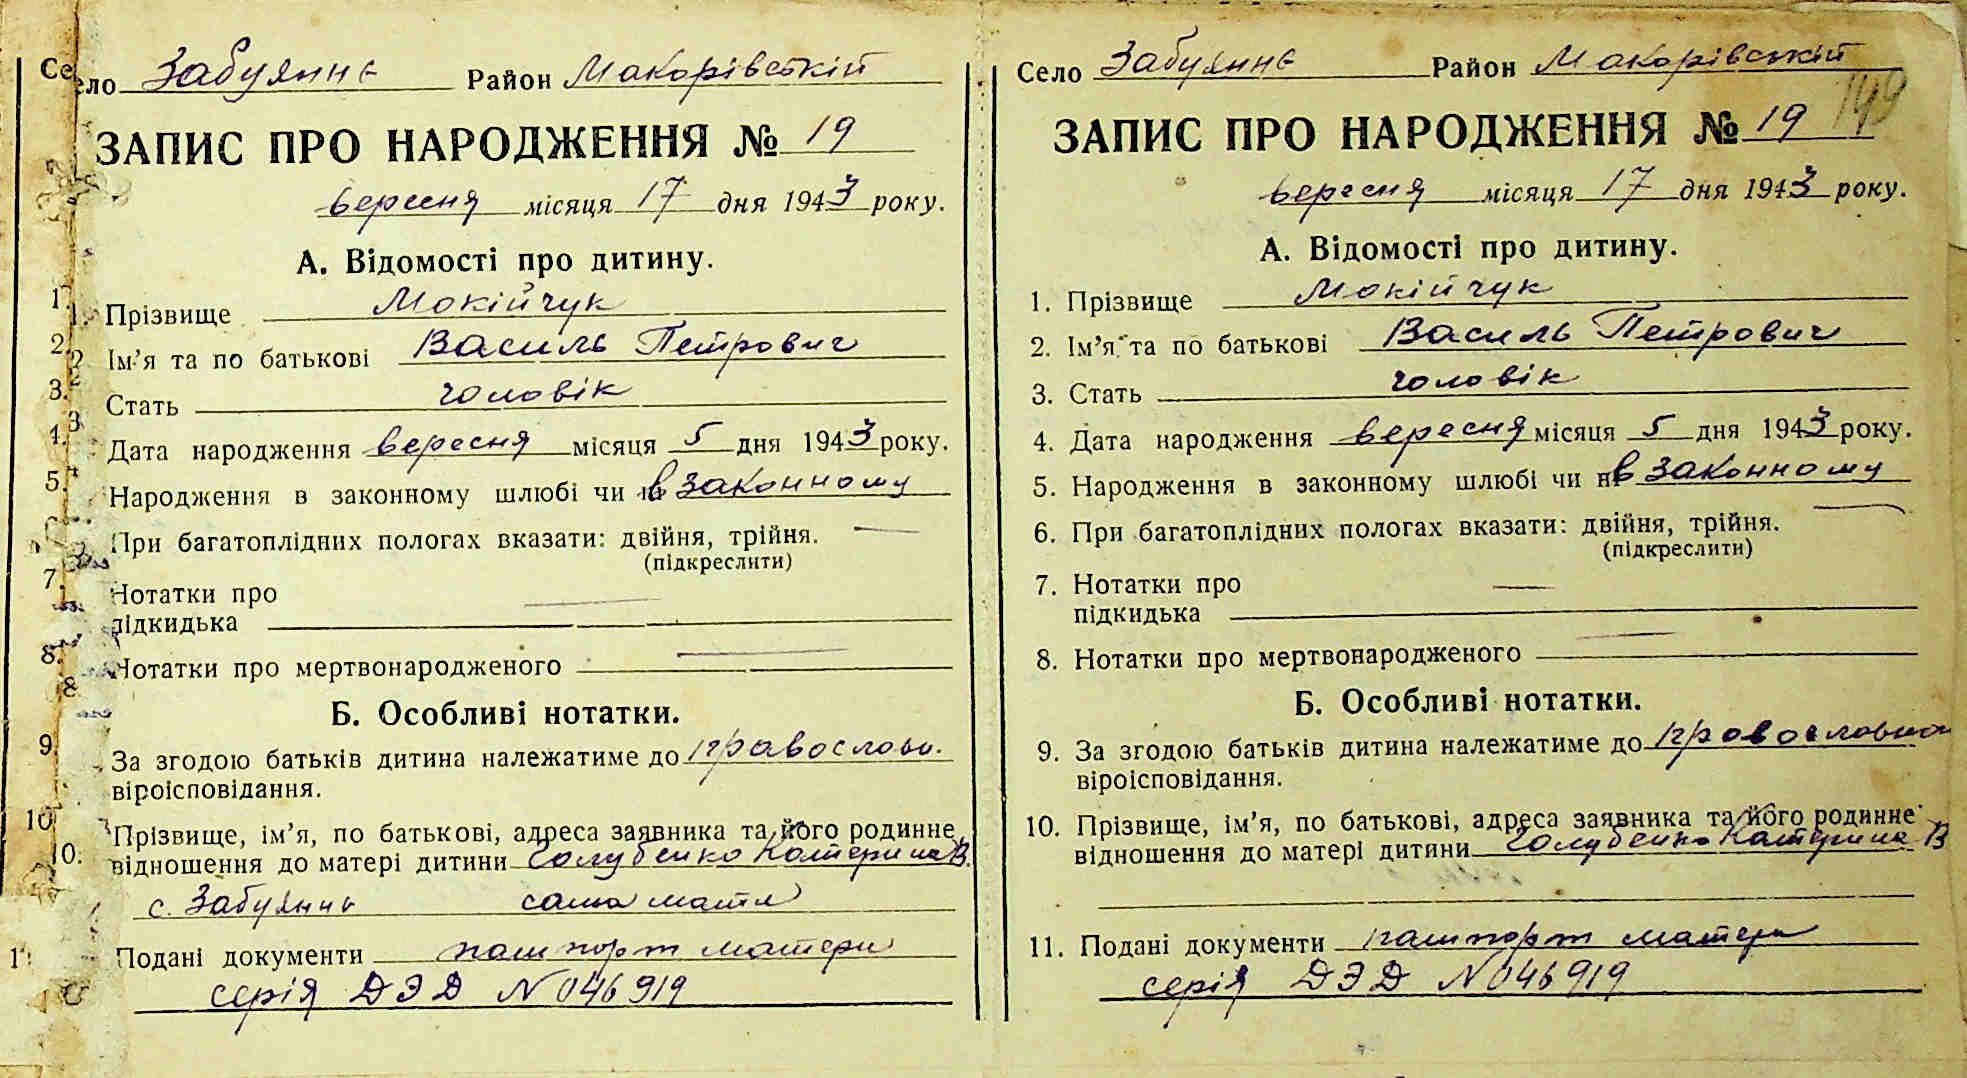 Село Забуянне Район Макарівський
ЗАПИС ПРО НАРОДЖЕННЯ № 19
вересня місяця 17 дня 1943 року.
А. Відомості про дитину.
1. Прізвище Мокійчук
2. Ім'я та по батькові Василь Петрович
3. Стать чоловік
4. Дата народження вересня місяця 5 дня 1943 року.
5. Народження в законному шлюбі чи в законному
При багатоплідних пологах вказати: двійня, трійня. —
(підкреслити)
7. Нотатки про
підкидька —
8. Нотатки про мертвонародженого —
Б. Особливі нотатки.
9. За згодою батьків дитина належатиме до православн.
віроісповідання.
10. Прізвище, ім'я, по батькові, адреса заявника та його родинне
відношення до матері дитини Голубенко Катерина В.
с. Забуянне сама мати
11. Подані документи пашпорт матери
серія ДЭД N 046919
Село Забуянне Район Макарівський
149
ЗАПИС ПРО НАРОДЖЕННЯ № 19
вересня місяця 17 дня 1943 року.
А. Відомості про дитину.
1. Прізвище Мокійчук
2. Ім'я та по батькові Василь Петрович
3. Стать чоловік
4. Дата народження вересня місяця 5 дня 1943 року.
5. Народження в законному шлюбі чи ні в законному
6. При багатоплідних пологах вказати: двійня, трійня. —
(підкреслити)
7. Нотатки про
підкидька —
8. Нотатки про мертвонародженого —
Б. Особливі нотатки.
9. За згодою батьків дитина належатиме до православно
віроісповідання.
10. Прізвище, ім'я, по батькові, адреса заявника та його родинне
відношення до матері дитини Голубенко Катерина В
11. Подані документи пашпорт матери
серія ДЭД N 046919